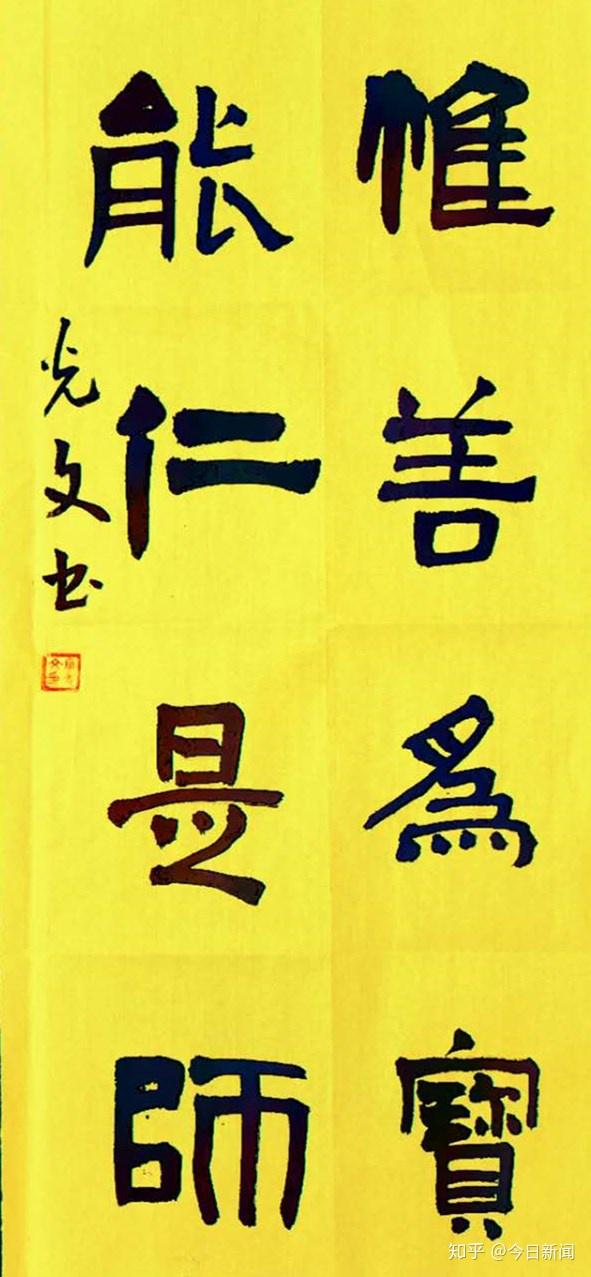 惟善為寶
能仁是師
光文书
知乎 @今日新闻